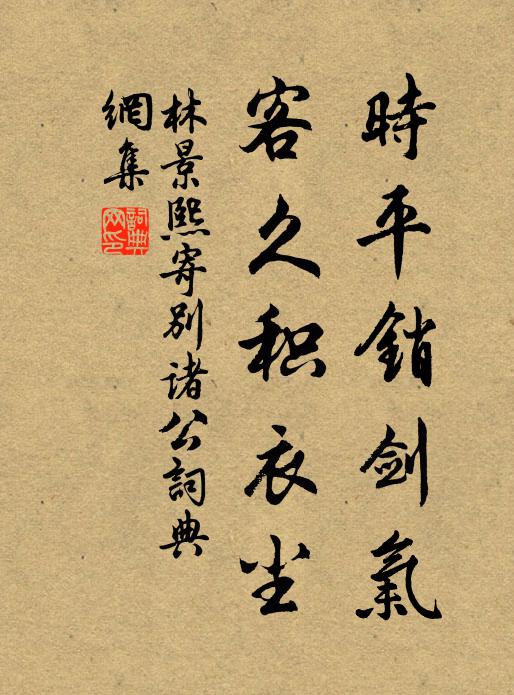 時平銷劍氣
客久积衣尘
林景熙寄别诸公詞典
網集
詞典
网印